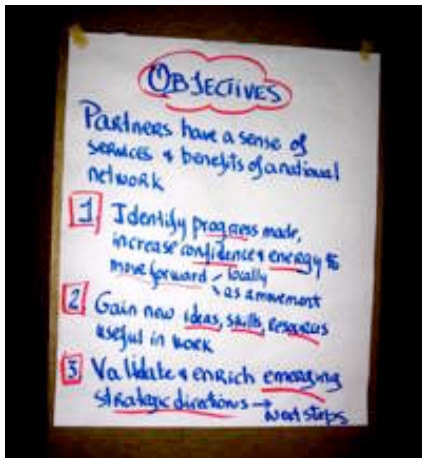 OBJECTIVES
Partners have a sense of
services & benefits of a national
network
1 Identify progress made,
increase confidence & energy to
move forward - locally
- as a movement
2 Gain new ideas, skills, resources
useful in work
3 Validate & enrich emerging
strategic directions →
next steps